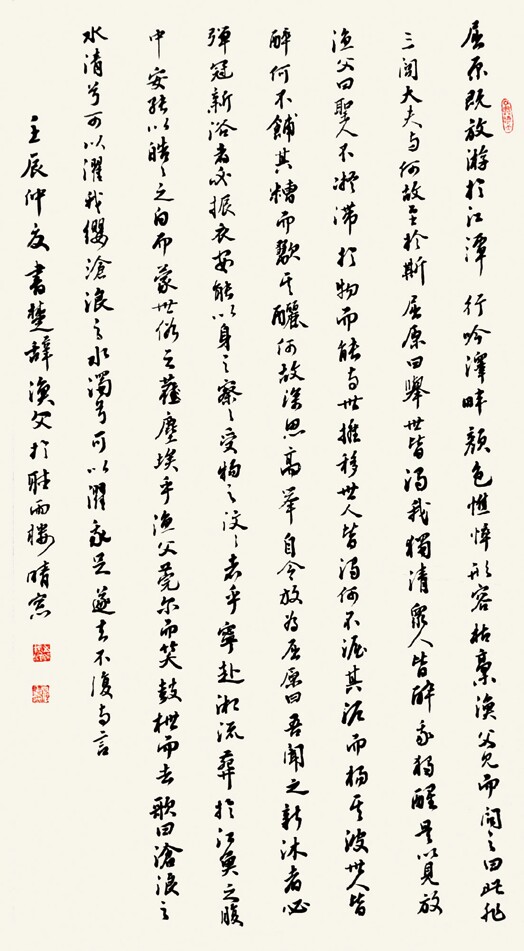 屈原既放游於江潭行吟澤畔顏色憔悴形容枯槀漁父見而問之曰此非
三閭大夫与何故至於斯屈原曰舉世皆濁我獨清衆人皆醉我獨醒是以見放
漁父曰聖人不凝滯於物而能与世推移世人皆濁何不淈其泥而揚其波世人皆
醉何不餔其糟而歠其釃何故深思高舉自令放為屈原曰吾聞之新沐者必
彈冠新浴者必振衣安能以身之察々受物之汶々者乎寧赴湘流葬於江魚之腹
中安能以皓々之白而蒙世俗之塵埃乎漁父莞尔而笑鼓枻而去歌曰滄浪之
水清兮可以濯我纓滄浪之水濁兮可以濯我足遂去不復与言
壬辰仲夏書楚辭漁父於聽雨樓晴窓